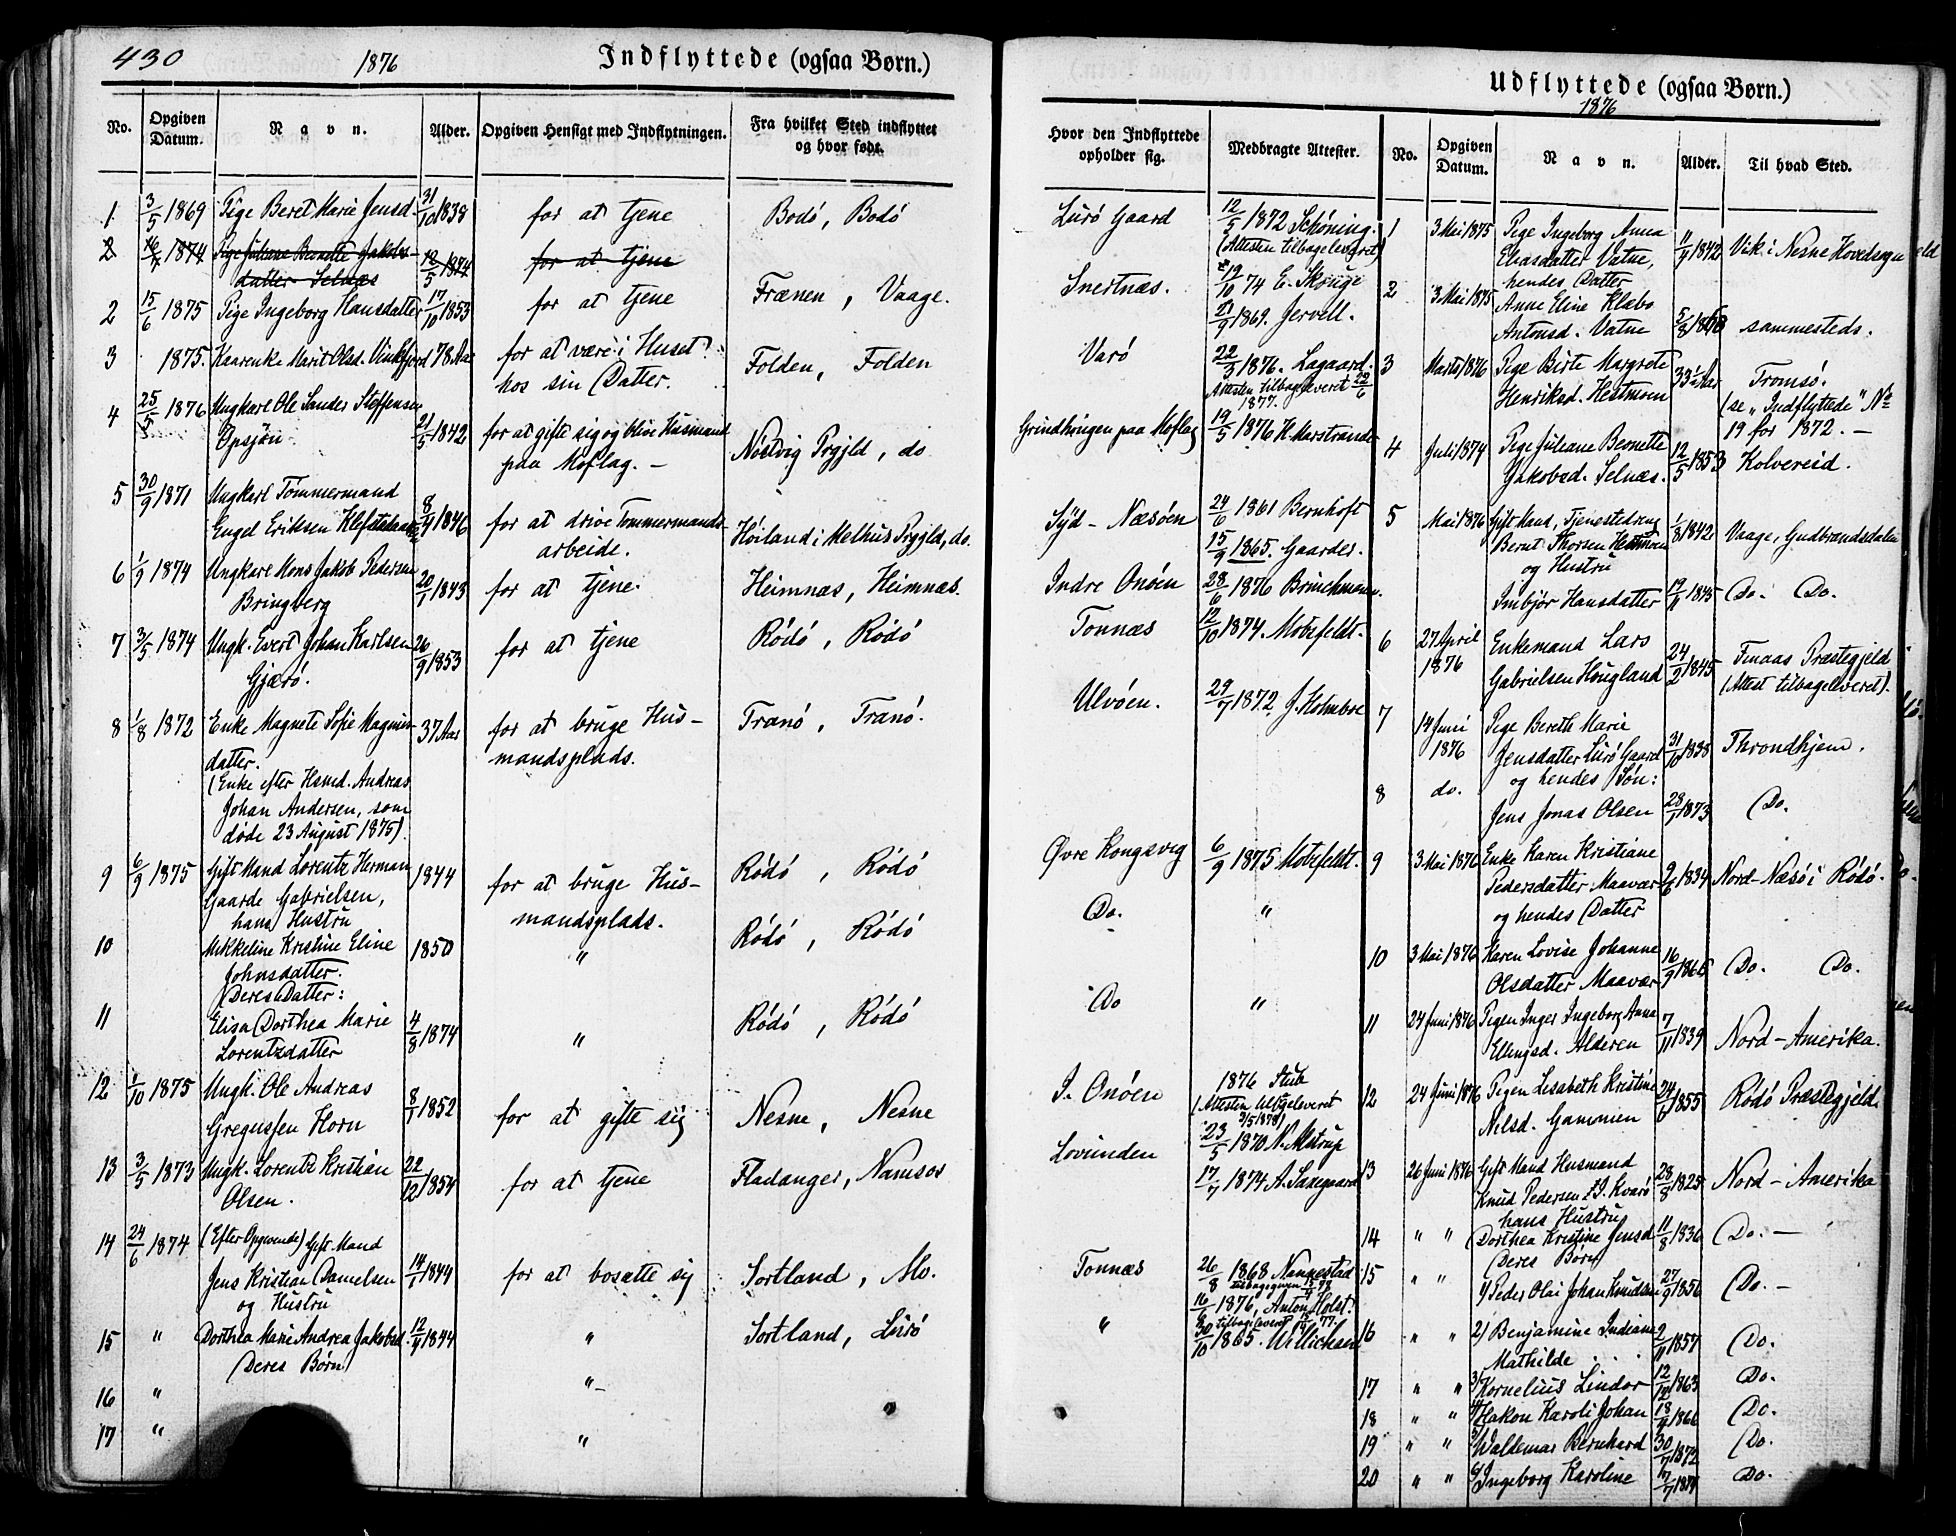 430
1876
Indflyttede (ogsaa Børn.)
No.
Opgiven Datum.
Navn.
Alder.
Opgiven Hensigt med Indflytningen.
Fra hvilket Sted indflyttet og hvor født.
1 3/5 1869 Pige Beret Marie Jensd. 31/10 1838 for at tjene Bodö, Bodö
2 1874 Pige Juliane Bernette Jakobs- 12/5 1874 for at tjene
datter Selnæs
2 15/6 1875 Pige Ingeborg Hansdatter 17/10 1853 for at tjene Frænen, Vaage.
3 1875. Kaarenke Marit Olsd. 78 Aar for at være i Huset Folden, Folden
hos sin Datter.
4 25/5 1876 Ungkarl Ole Sander Steffensen
21/5 1842 for at gifte sig og blive Husmand
paa Moflag. — Nöstvig Prgjld, do
5 30/9 1871 Ungkarl Tömmermand
Engel Eriksen 8/4 1846 for at drive Tömmermands-
arbeide. Höiland i Melhus Prgjld, do.
6 1/9 1874 Ungkarl Mons Jakob Pedersen 20/1 1843 for at tjene. Heimnæs, Heimnæs.
Bringberg
7 3/5 1874 Ungk. Evert Johan Karlsen 26/9 1853 for at tjene Rödö, Rödö
Gjærö.
8 1/8 1872 Enke Magnete Sofie Magnus- 37 Aar for at bruge Hus- Tranö, Tranö.
datter. mandsplads.
(Enke efter Hsmd. Andreas
Johan Andersen, som
döde 23 August 1875).
9 6/9 1875 Gift Mand Lorentz Herman 1844 for at bruge Hus- Rödö, Rödö
Gaarde Gabrielsen, mandsplads.
hans Hustru
10 Mekkeline Kristine Eline 1850 " Rödö, Rödö
Johnsdatter.
Deres Datter:
11 Elisa Dorthea Marie 4/8 1874 " Rödö, Rödö
Lorentzdatter
12 1/10 1875 Ungk. Ole Andreas 8/1 1852 for at gifte sig Nesne, Nesne
Gregussen Horn
13 3/5 1873 Ungk. Lorentz Kristian 22/12 1854 for at tjene Fladanger, Namsos
Olsen.
14 24/6 1874 (Efter Opgivende) Gift Mand
Jens Kristian Danielsen 14/1 1844 for at bosætte sig Sortland, Mo.
og Hustru
15 " Dorthea Marie Andrea Jakobsd. 12/4 1844 " Sortland, Lurö
Deres Børn
16 " "
17 " "
Udflyttede (ogsaa Børn.)
1876
Hvor den Indflyttede opholder sig.
Medbragte Attester.
No.
Opgiven Datum.
Navn.
Alder.
Til hvad Sted.
Lurö Gaard 12/5 1872 Schöning.
(Attesten tilbageleveret)
Snertnæs. 12/10 74 E. Skouge
21/9 1869. Jervell.
Varö 22/3 1876. Lagaard.
Attesten tilbageleveret 22/6
1877.
Grindhougen paa Moflag 19/5 1876 H. Marstrander
Syd-Næsöen 24/6 1861 Bernhoft
15/9 1865. Gaarder.
Indre Onöen 28/6 1876 Brinchmann.
Tonnæs 12/10 1874. Motzfeldt.
Ulvöen. 29/7 1872 J. Holmboe
Øvre Kongsvig 6/9 1875 Motzfeldt.
Do. "
Do "
I. Onöen 1876 Stub
(Attesten tilbageleveret
3/5 1878)
Lovunden 23/5 1870 N. Alstrup
17/7 1874 A. Saxegaard
Tonnæs 26/8 1868 Nannestad
16/6 1876, Anton Holst.
tilbageleveret 77.
" 30/10 1865. Ullichsen
1 3 Mai 1875 Pige Ingeborg Anna 11/9 1842 Vik i Nesne Hovedsogn
Eliasdatter Vatne,
hendes Datter
2 3 Mai 1875 Anne Eline Klæbo
Antonsd. Vatne sammesteds.
3 Marts 1876 Pige Birte Margrete 33½ Aar Tromsö.
Henriksd. Hestmoen (se „Indflyttede" No
19 for 1872. —
4 Juli 1874 Pige Juliane Bernette 12/5 1853 Kolvereid.
Jakobsd. Selnæs.
5 Mai 1876 Gift Mand, Tjenestedreng 1/8 1842 Vaage, Gudbrandsdalen
Bernt Thorsen Hestmoen
og Hustru
Imbjör Hansdatter 19/11 1845 Do. Do.
6 27 April 1876 Enkemand Lars 24/2 1845 Præstegjeld
Gabrielsen Hougland (Attest tilbageleveret).
7 14 Juni 1876 Pige Bereth Marie
Jensdatter Lurö Gaard 31/10 1838 Throndhjem.
og hendes Sön:
8 do. Jens Jonas Olsen 28/1 1873 Do.
9 3 Mai 1876 Enke Karen Kristiane
Pedersdatter Maavær 2/6 1834 Nord-Næsö i Rödö.
og hendes Datter
10 3 Mai 1876 Karen Lovise Johanne
Olsdatter Maavær 16/9 1865 Do. Do.
11 24 Juni 1876 Pigen Inger Ingeborg Anna
Ellingsd. Alderen 7/11 1839 Nord-Amerika.
12 24 Juni 1876 Pigen Lisabeth Kristine 24/6 1855 Rödö Præstegjeld.
Nilsd. Gammen
13 26 Juni 1876 Gift Mand Husmand 28/8 1825 Nord-Amerika
Knud Pedersen Kvarö
hans Hustru
14 " " Dorthea Kristine Jensd. 11/8 1830 Do. —
Deres Børn
15 " " 1) Peder Olai Johan Knudsen 27/9 1856 Do. —
16 " " 2) Benjamine Indiane 2/11 1857 Do.
Mathilde . . . .
17 " " 3) Kornelius Lindor 12/12 1863 Do.
18 " " 4) Hakon Karoli Johan 18/4 1866 Do.
19 " " 5) Waldemar Bernhard 30/7 1872 Do.
20 " " 6) Ingeborg Karoline 17/7 1874 Do.